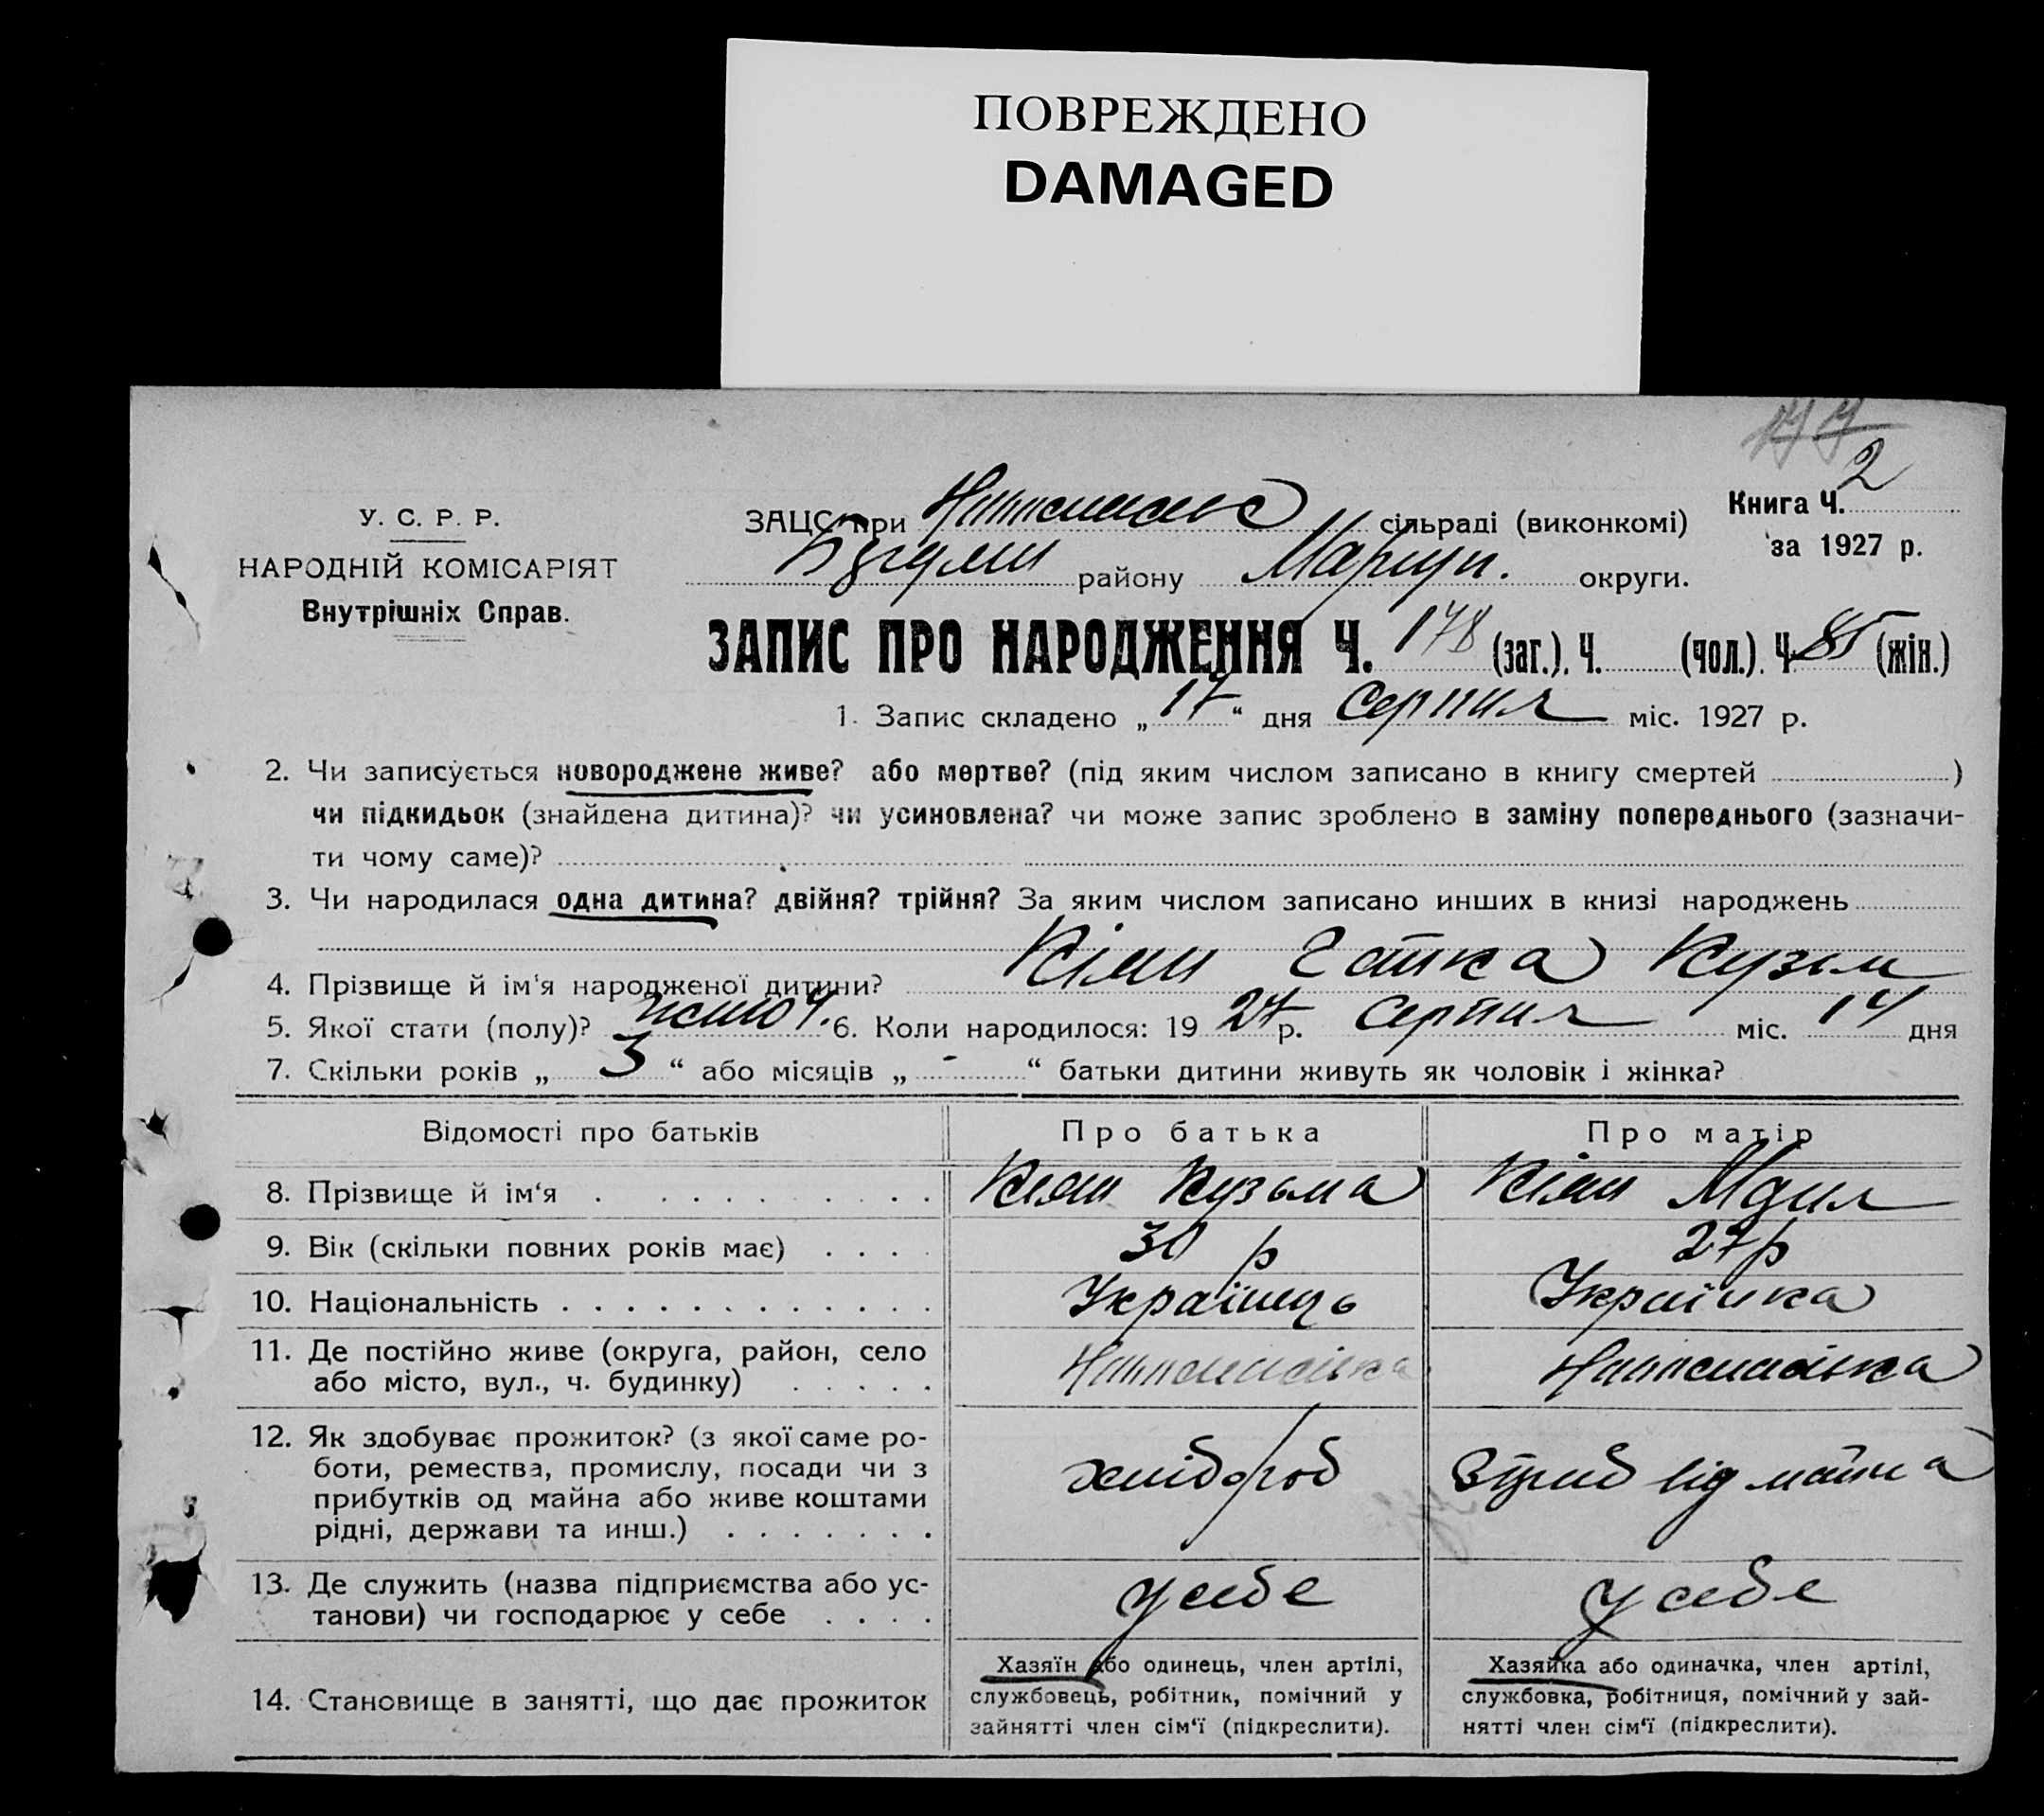 ПОВРЕЖДЕНО
DAMAGED
2
У. С. Р. Р.
НАРОДНІЙ КОМІСАРІЯТ
Внутрішніх Справ.
ЗАЦС при сільраді (виконкомі)
району Маріуп. округи.
Книга Ч.
за 1927 р.
ЗАПИС ПРО НАРОДЖЕННЯ Ч. 178 (заг.). Ч. (чол.). Ч. 85 (жін.)
1. Запис складено „ 17 “ дня Серпня міс. 1927 р.
2. Чи записується новороджене живе? або мертве? (під яким числом записано в книгу смертей )
чи підкидьок (знайдена дитина)? чи усиновлена? чи може запис зроблено в заміну попереднього (зазначи-
ти чому саме)?
3. Чи народилася одна дитина? двійня? трійня? За яким числом записано инших в книзі народжень
4. Прізвище й ім‘я народженої дитини? Кіян Кузьм
5. Якої стати (полу)? жіноч. 6. Коли народилося: 19 27 р. Серпня міс. 14 дня
7. Скільки років „ 3 “ або місяців „ - “ батьки дитини живуть як чоловік і жінка?
Відомості про батьків Про батька Про матір
8. Прізвище й ім‘я Киян Кузьма Кіян
9. Вік (скільки повних років має) 30 р 27 р
10. Національність Українець Українка
11. Де постійно живе (округа, район, село
або місто, вул., ч. будинку)
12. Як здобуває прожиток? (з якої саме ро-
боти, ремества, промислу, посади чи з
прибутків од майна або живе коштами
рідні, держави та инш.) хлібороб від майна
13. Де служить (назва підприємства або ус-
танови) чи господарює у себе у себе у себе
14. Становище в занятті, що дає прожиток
Хазяїн або одинець, член артілі,
службовець, робітник, помічний у
зайнятті член сім‘ї (підкреслити).
Хазяйка або одиначка, член артілі,
службовка, робітниця, помічний у зай-
нятті член сім‘ї (підкреслити).